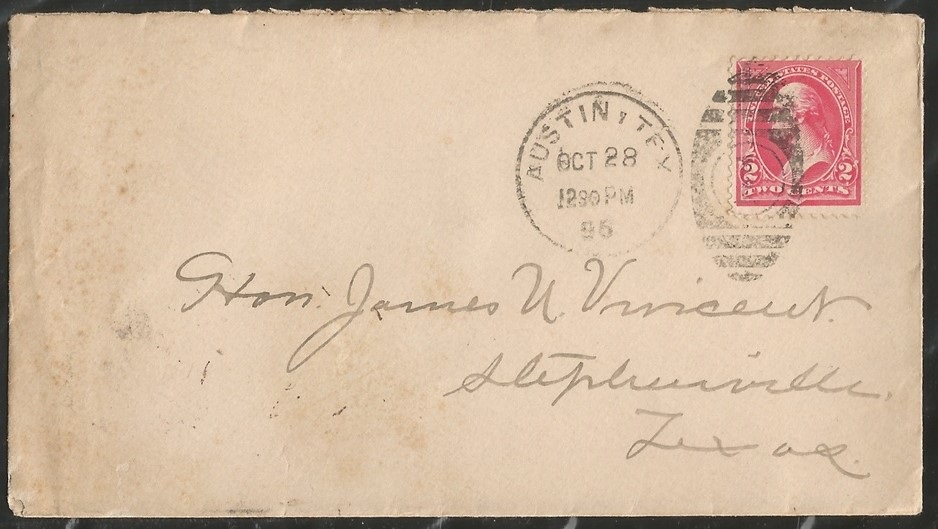 AUSTIN, TEX
OCT 28
1230 PM
95
UNITED STATES POSTAGE
2 2
TWO CENTS
Hon. James N. Vincent.
Stephenville.
Texas.